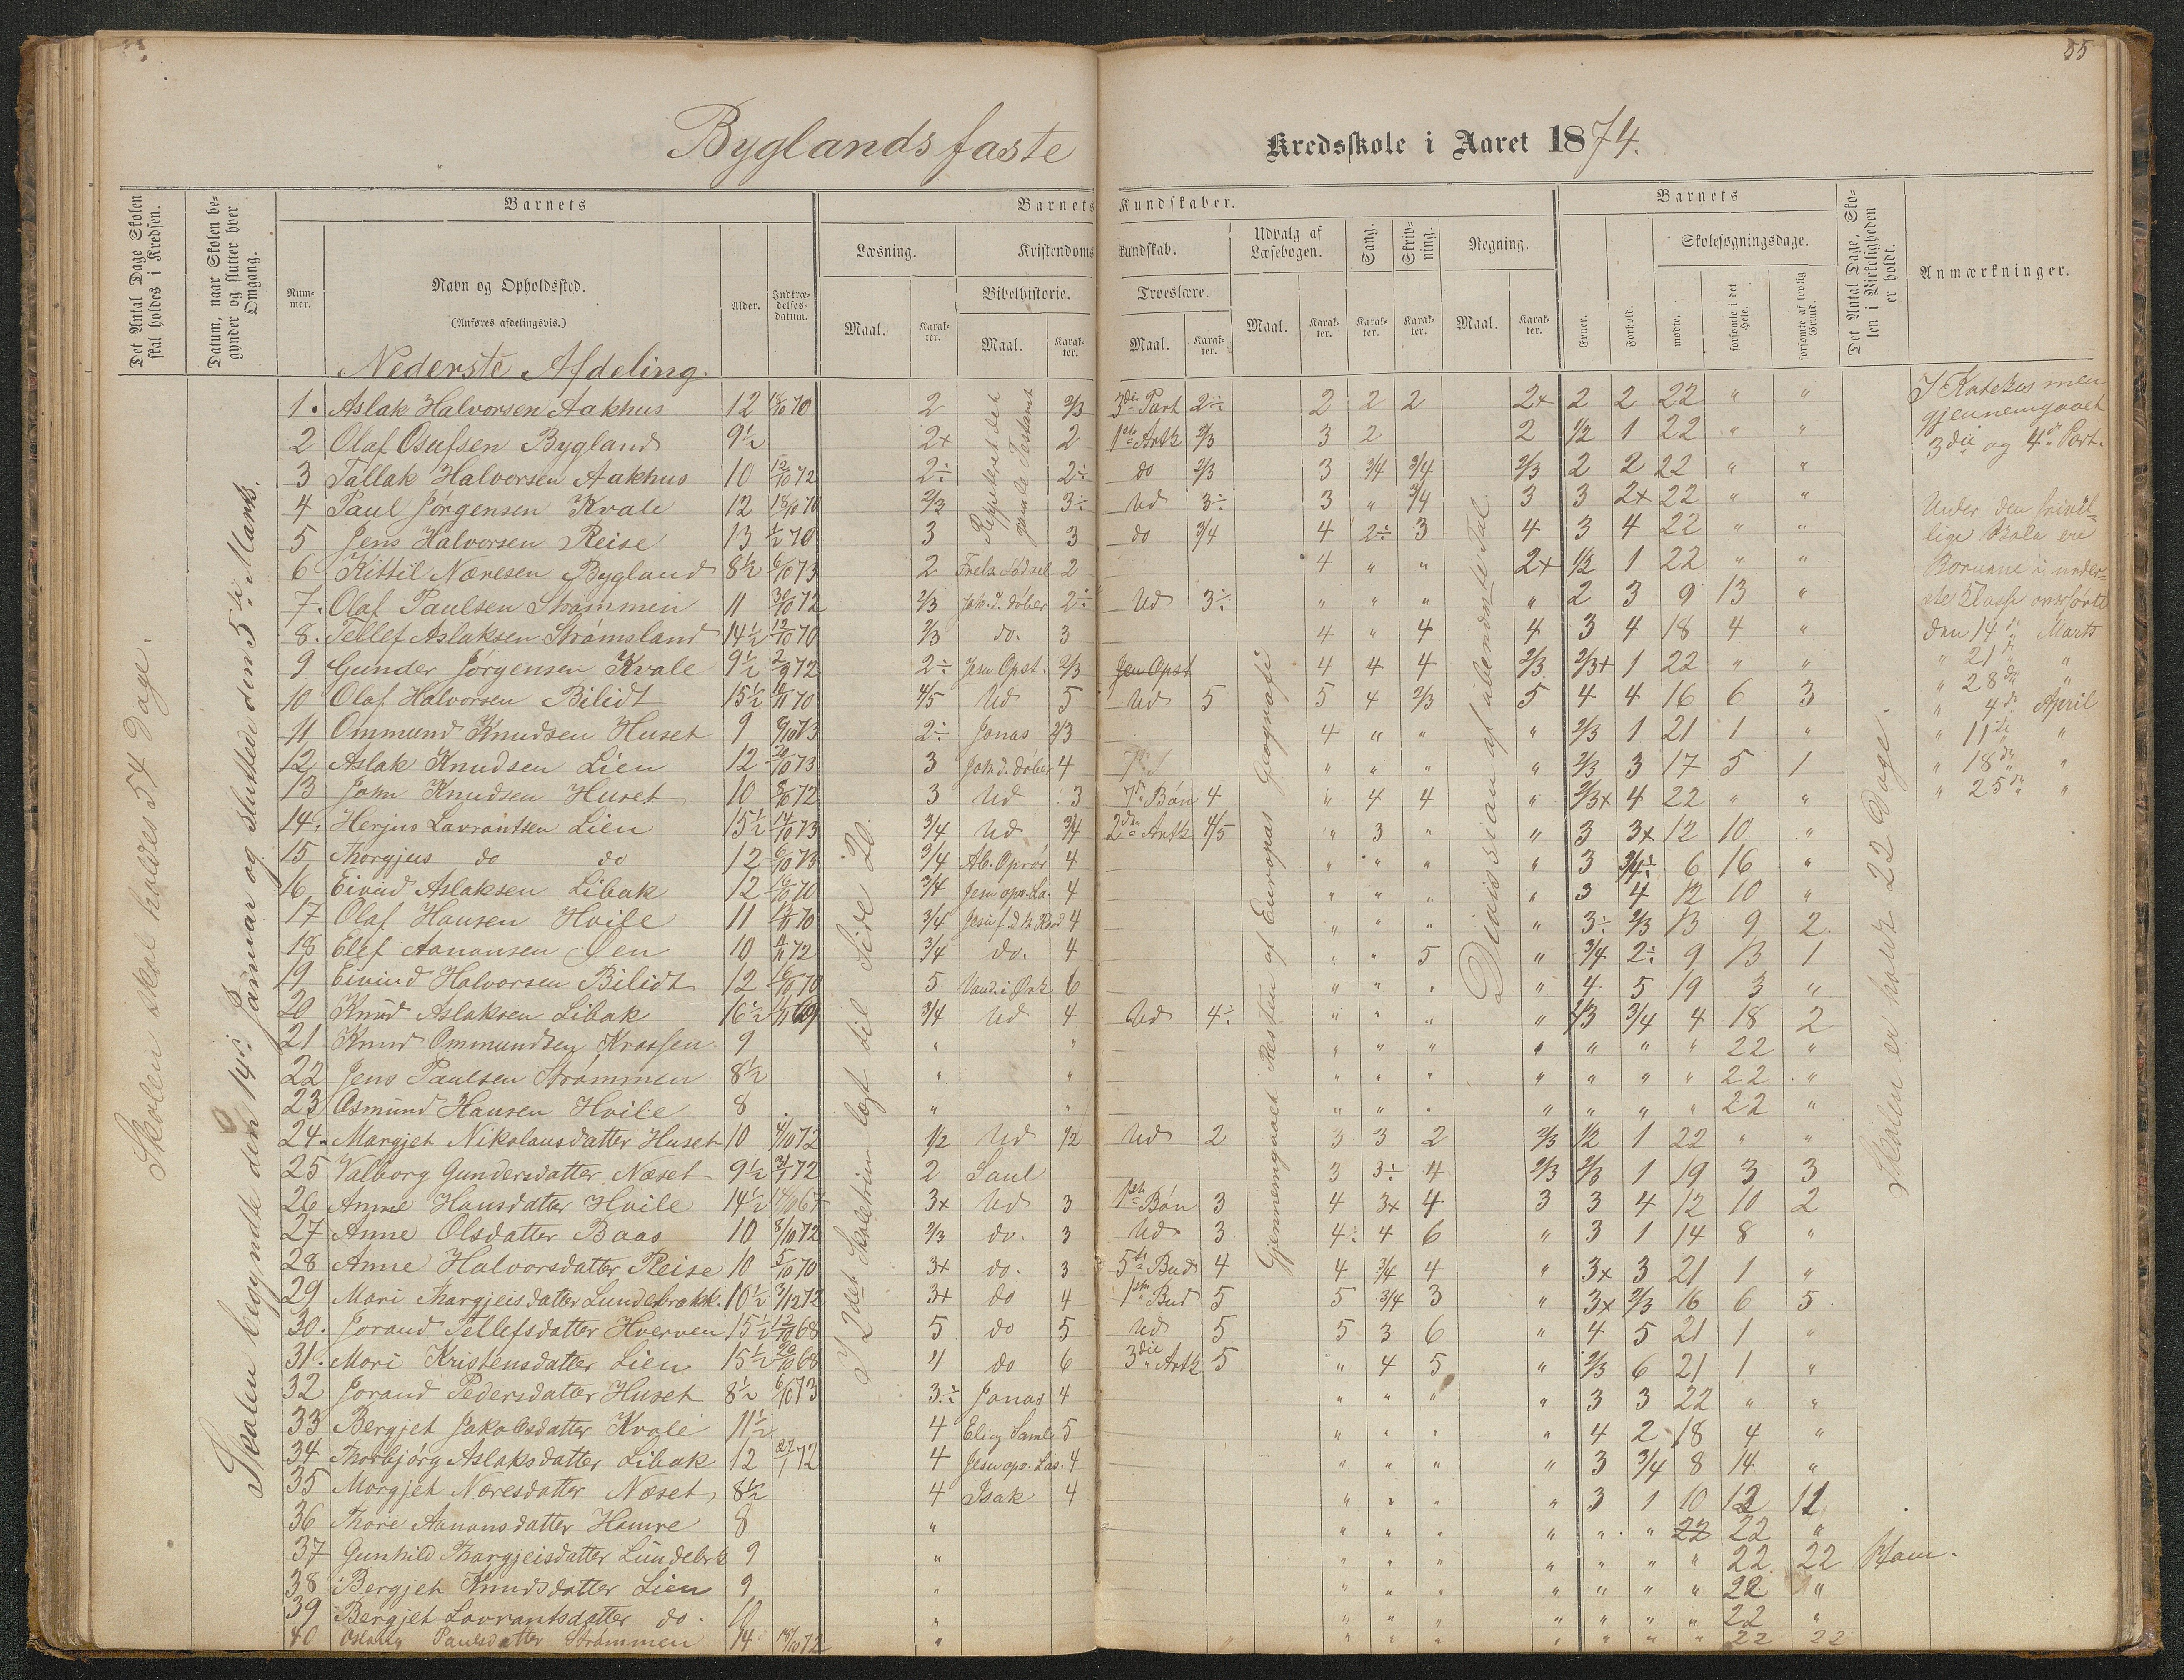 55
Byglands faste Kredsskole i Aaret 1874.
Det Antal Dage Skolen skal holdes i Kredsen.
Datum, naar Skolen begynder og slutter hver Omgang.
Barnets
Nummer.
Navn og Opholdssted.
(Anføres afdelingsvis.)
Alder.
Indtrædelsesdatum.
Barnets Kundskaber.
Læsning.
Maal.
Karakter.
Kristendomskundskab.
Bibelhistorie.
Maal.
Karakter.
Troeslære.
Maal.
Karakter.
Udvalg af Læsebogen.
Maal.
Karakter.
Sang.
Karakter.
Skrivning.
Karakter.
Regning.
Maal.
Karakter.
Barnets
Evner.
Forhold.
Skolesøgningsdage.
mødte.
forsømte i det Hele.
forsømte af lovlig Grund.
Det Antal Dage, Skolen i Virkeligheden er holdt.
Anmærkninger.
Skolen skal holdes 54 Dage.
Skolen begyndte den 14de Januar og sluttede den 5te Marts.
I 2det Skoletrin læst til Side 20.
Repeteret det gamle Testamt
Gjennemgaaet Resten af Europas Geografi
Divission af ubenævnte Tal
Skolen er holdt 22 Dage.
Nederste Afdeling.
1. Aslak Halvorsen Aakhus 12 18/10 70 2 2/3 3die Part 2÷ 2 2 2 2+ 2 2 22 " "
2 Olaf Osufsen Bygland 9½ 2+ 2 1ste Artk 2/3 3 2 2 1/2 1 22 " "
3 Tallak Halvorsen Aakhus 10 12/10 72 2÷ 2÷ do 2/3 3 3/4 3/4 2/3 2 2 22 " "
4 Paul Jørgensen Kvale 12 18/10 70 2/3 3÷ Ud 3÷ 3 " 3/4 3 3 2+ 22 " "
5 Jens Halvorsen Reise 13 1/2 70 3 3 do 3/4 4 2÷ 3 4 3 4 22 " "
6 Kittil Næresen Bygland 8½ 6/10 73 2 Frels. Fødsel 2 4 " " 2+ 1/2 1 22 " "
7. Olaf Paulsen Strømmen 11 30/10 72 2/3 Joh. d. døber 2÷ Ud 3÷ " " " " 2 3 9 13 "
8. Tellef Aslaksen Strømsland 14½ 12/10 70 2/3 do. 3 4 " 4 4 3 4 18 4 "
9 Gunder Jørgensen Kvale 9½ 2/9 72 2÷ Jesu Opst. 2/3 Jesu Opst 4 4 4 2/3 2/3+ 1 22 " "
10 Olaf Halvorsen Bilidt 15½ 70 4/5 Ud 5 Ud 5 5 4 2/3 5 4 4 16 6 3
11 Ommund Knudsen Huset 9 9/10 73 2÷ Jonas 2/3 4 " " " 2/3 1 21 1 "
12 Aslak Knudsen Lien 12 20/10 73 3 Joh. d. døber 4 " " " " 2/3 3 17 5 1
13 John Knudsen Huset 10 8/10 72 3 Ud 3 7de Bøn 4 " 4 4 " 2/3+ 4 22 " "
14. Herjus Lavrantsen Lien 15½ 14/10 73 3/4 Ud 3/4 2den Artk 4/5 " 3 " " 3 3+ 12 10 "
15 Thorgjus do do 12 6/10 73 3/4 Ab. Oprør 4 " " " " 3 3/4÷ 6 16 "
16 Eivind Aslaksen Libak 12 16/10 70 3/4 Jesu opv. La. 4 " " " " 3 4 12 10 "
17 Olaf Hansen Hvile 11 70 3/4 4 " " " " 3÷ 2/3 13 9 2
18 Elef Aanonsen Øen 10 72 3/4 do. 4 " " 5 " 3/4 2÷ 9 13 1
19 Eivind Halvorsen Bilidt 12 16/10 70 5 Vand. i Ørk 6 " " " " 4 5 19 3 "
20 Knud Aslaksen Libak 16½ 69 3/4 Ud 4 Ud 4÷ " " " " 2/3 3/4 4 18 2
21 Knud Ommundsen 9 " " " " " " " " " 22 "
22 Jens Paulsen Strømmen 8½ " " " " " " " " " 22 "
23 Osmund Hansen Hvile 8 " " " " " " " " " 22 "
24. Margjet Nikolausdatter Huset 10 4/10 72 1/2 Ud 1/2 Ud 2 3 3 2 2/3 1/2 1 22 " "
25 Valborg Gundersdatter Næset 9½ 31/1 72 2 Saul 3 3÷ 4 2/3 2/3 1 19 3 3
26 Anne Hansdatter Hvile 14½ 67 3+ Ud 3 1ste Bøn 3 4 3+ 4 3 3 4 12 10 2
27 Anne Olsdatter Baas 10 8/10 72 2/3 do. 3 Ud 3 4÷ 4 6 " 3 1 14 8 "
28 Anne Halvorsdatter Reise 10 5/10 70 3+ do. 3 5te Bud 4 4 3/4 4 " 3+ 3 21 1 "
29 Mari Thorgjeisdatter Lundebrækk. 10½ 3/12 72 3+ do 4 1ste Bud 5 5 3/4 3 " 3+ 2/3 16 6 5
30. Jorand Tellefsdatter Hverven 15½ 12/10 68 5 do 5 Ud 5 5 3 6 " 4 5 21 1 "
31. Mari Kristensdatter Lien 15½ 20/10 68 4 do 6 3die Artk 5 " 4 5 " 2/3 6 21 1 "
32 Jorand Pedersdatter Huset 8½ 6/10 73 3÷ Jonas 4 " " " " 3 3 22 " "
33 Bergjet Jakobsdatter Kvale 11½ 4 Eli og Saml 5 " " " " 4 2 18 4 "
34 Thorbjørg Aslaksdatter Libak 12 27/1 72 4 Jesu opv. Las. 4 " " " " 3 3/4 8 14 "
35 Margjet Næresdatter Næset 8½ 4 Isak 4 " " " " 3 1 10 12 11
36 Thore Aanonsdatter Hamre 8 " " " " " " " 22 22 "
37 Gunhild Thorgjeisdatter Lundebrk 9 " " " " " " " " 22 22
38 Bergjet Knudsdatter Lien 9 " " " " " " " " 22 "
39 Bergjet Lavrantsdatter do. 10 " " " " " " " " 22 "
40 Paulsdatter Strømmen 14 72 " " " " " " " " 22 22
I Katekismen
gjennemgaaet
3die og 4de Part.
Under den frivil-
lige Skole ere
Børnene i neder-
ste Klasse
den 14de Marts
" 21de "
" 28de "
" 4de April
" 11te "
" 18de "
" 25de "